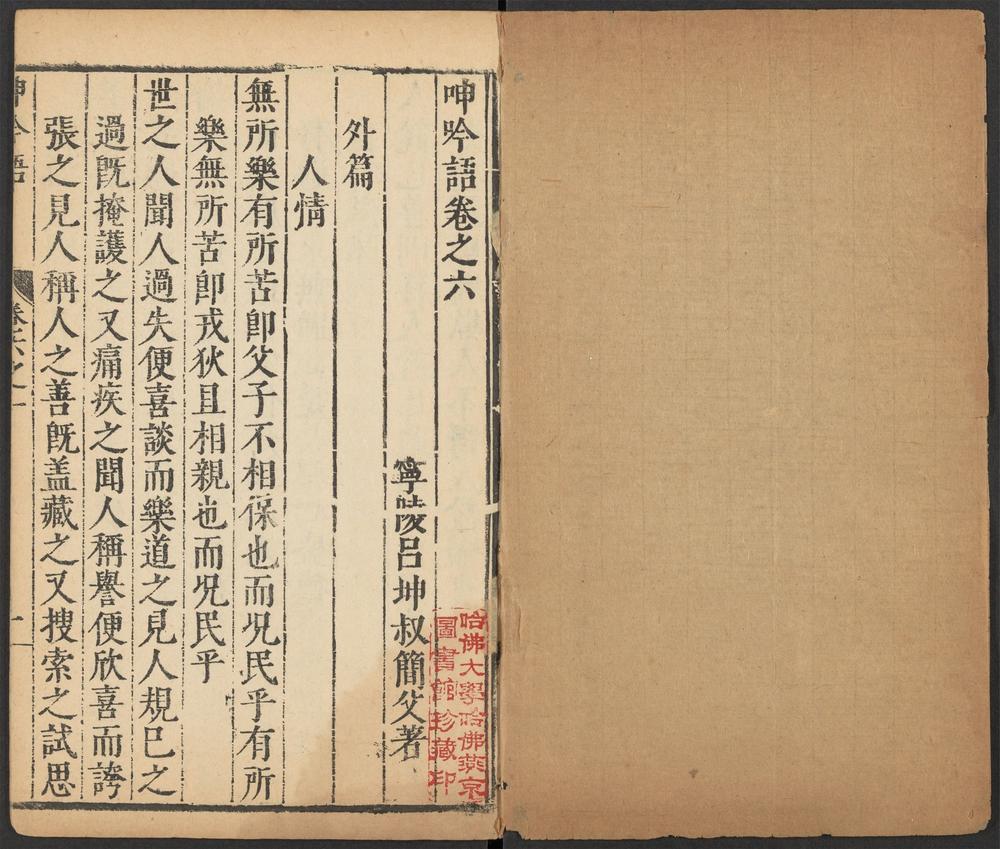 呻吟語卷之六
寧陵呂坤叔簡父著
外篇
人情
無所樂有所苦卽父子不相保也而況民乎有所
樂無所苦卽戎狄且相親也而況民乎
世之人聞人過失便喜談而樂道之見人規巳之
過旣掩護之又痛疾之聞人稱譽便欣喜而誇
張之見人稱人之善旣盖藏之又搜索之試思
呻吟語
卷六之一
一
哈佛大學哈佛燕京
圖書館珍藏印